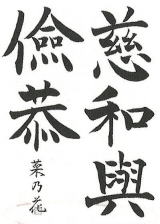 慈和與
儉恭
菜乃花